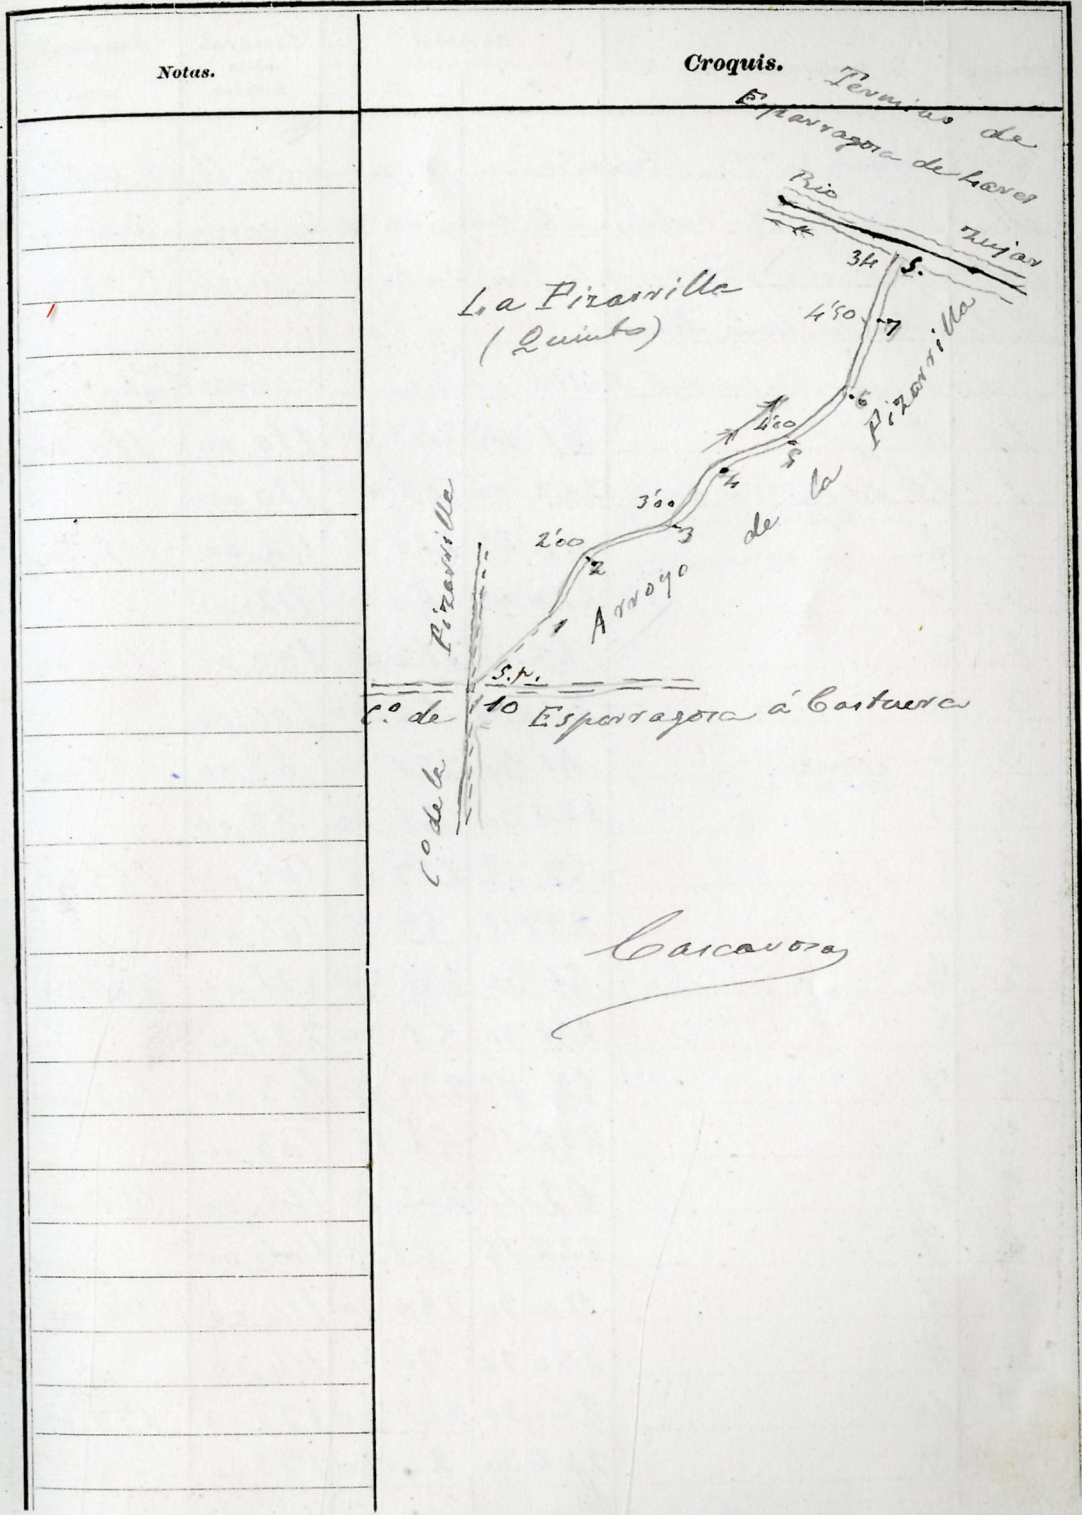 Notas.
Croquis.
Termino de
Esparragosa de Lares
Rio Zujar
34 S.
La Pizarrilla
(Quinto)
4'50 7
6
4'00
5
4
3'00
3
2'00
2
1
Arroyo de la Pizarrilla
S.p.
10
C.º de Esparragosa á Castuera
C.º de la Pizarrilla